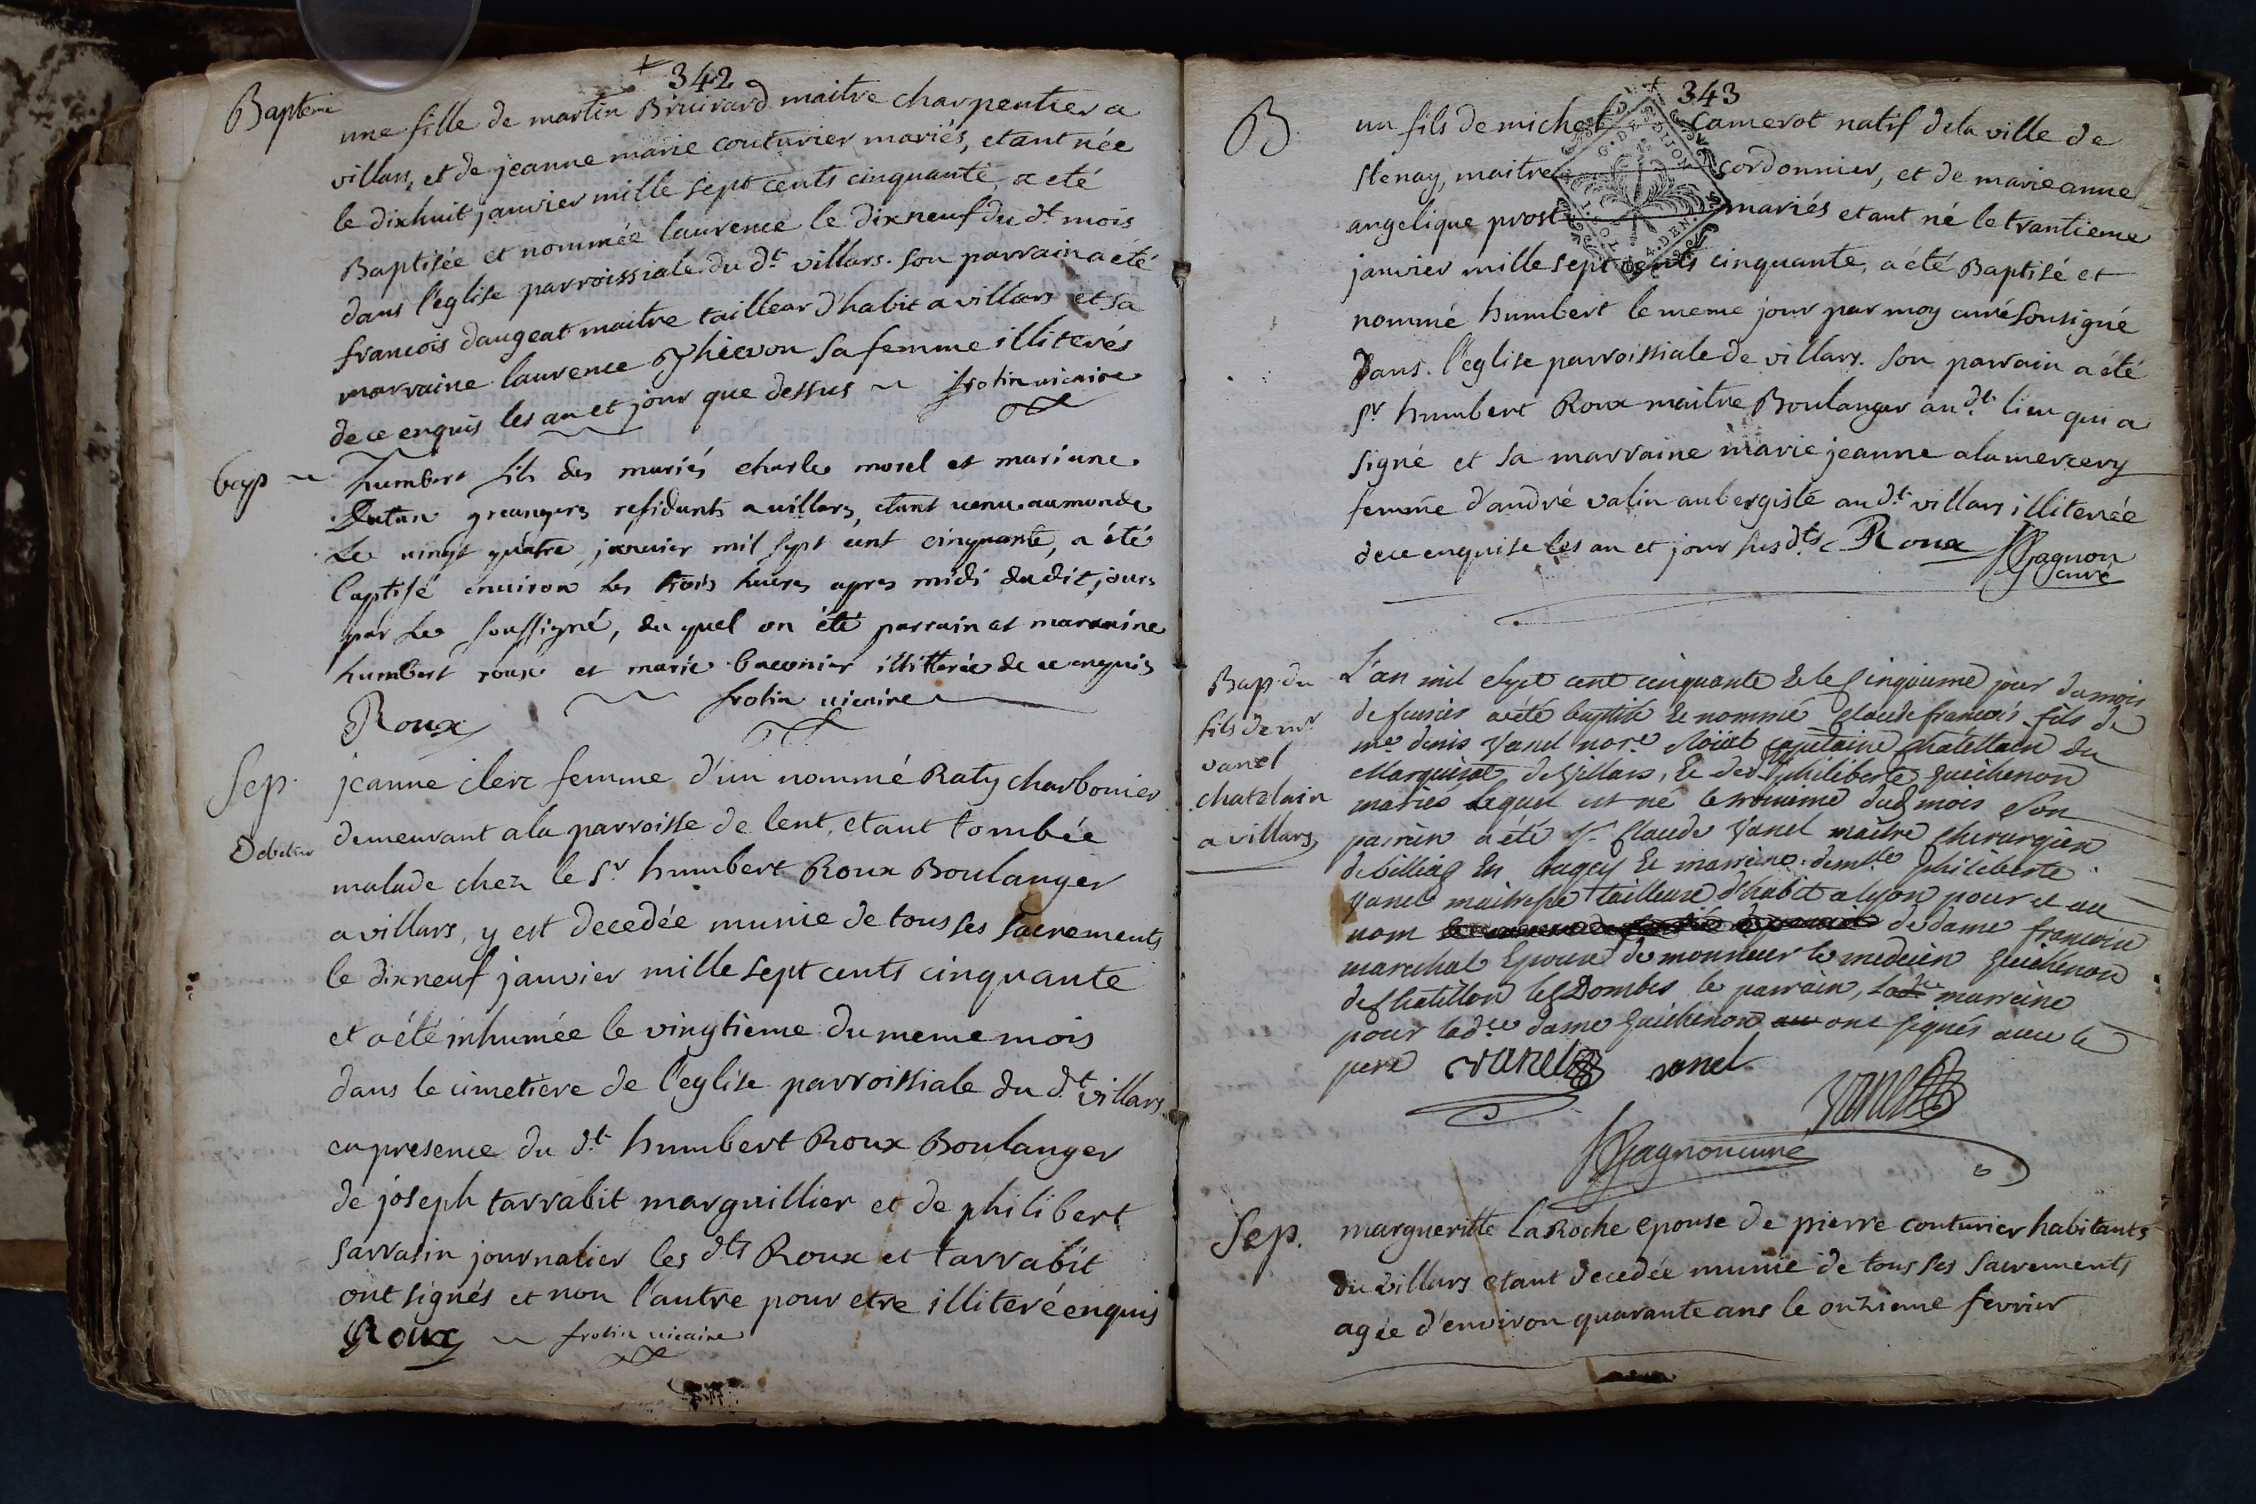 342
Bapteme
une fille de martin Bruirard maitre charpentier a
villars, et de jeanne marie couturier mariés, etant née
le dixhuit janvier mille sept cents cinquante, a eté
Baptisée et nommée laurence le dixneuf du dt mois
dans l'eglise parroissiale du dt villars. son parrain a été
francois daugeat maitre tailleur d'habit a villars et sa
marraine laurence sa femme illiterés
de ce enquis les an et jour que dessus frotin vicaire
bap
humbert fils des mariés charle morel et mariane
grangers residants a villars, etant venu au monde
Le vingt quatre janvier mil sept cent cinquante, a été
baptisé environ les trois heures apres midi dudit jours
par Le soussigné, du quel on été parrain et maraine
humbert roux et marie baconier illitterée de ce enquis
Roux frotin vicaire
Sep.
jeanne clerc femme d'un nommé Raty charbonier
demeurant a la parroisse de lent, etant tombée
malade chez le Sr humbert Roux Boulanger
a villars, y est decedée munie de tous ses sacrements
le dixneuf janvier mille sept cents cinquante
et a été inhumée le vingtieme du meme mois
dans le cimetiere de l'eglise parroissiale du dt villars
en presence du dt humbert Roux Boulanger
de joseph tarrabit marguillier et de philibert
sarrasin journalier les dts Roux et tarrabit
ont signés et non l'autre pour etre illiteré enquis
Roux frotin vicaire
343
B
un fils de michel Camerot natif de la ville de
stenay, maitre cordonnier, et de marie anne
angelique prost mariés etant né le trantieme
janvier mille sept cents cinquante, a été Baptisé et
nommé humbert le meme jour par moy curé sousigné
dans l'eglise parroissiale de villars. son parrain a été
Sr humbert Roux maitre Boulanger au dt lieu qui a
signé et sa marraine marie jeanne alamercery
femme d'andré valin aubergiste au dt villars illiterée
de ce enquise les an et jour susdts Roux Gagnon
curé
Bap. du
fils de mr
vanel
chatelain
a villars
L'an mil sept cent cinquante & le cinquieme jour du mois
de fevrier a été baptisé & nommé Claude francois fils de
me denis Vanel nore Roïal capitaine chatellain du
Marquisat de Villars, & de philiberte Guichenon
mariés lequel est né le troisieme dud mois Son
parrein a été Sr Claude Vanel maitre chirurgien
de billiag en bugey & marreine demlle philiberte
Vanel maitresse tailleuse d'habit a lyon pour et au
nom de dame francoise
marechal Epouse de monsieur le medecin Guichenon
de Chatillon les Dombes le parrain, marreine
pour lad.ce dame Guichenon ont signés avec le
pere Vanel vanel
vanel
Gagnon curé
Sep.
margueritte LaRoche epouse de pierre couturier habitants
du villars etant decedée munie de tous ses sacrements
agée d'environ quarante ans le onzieme fevrier